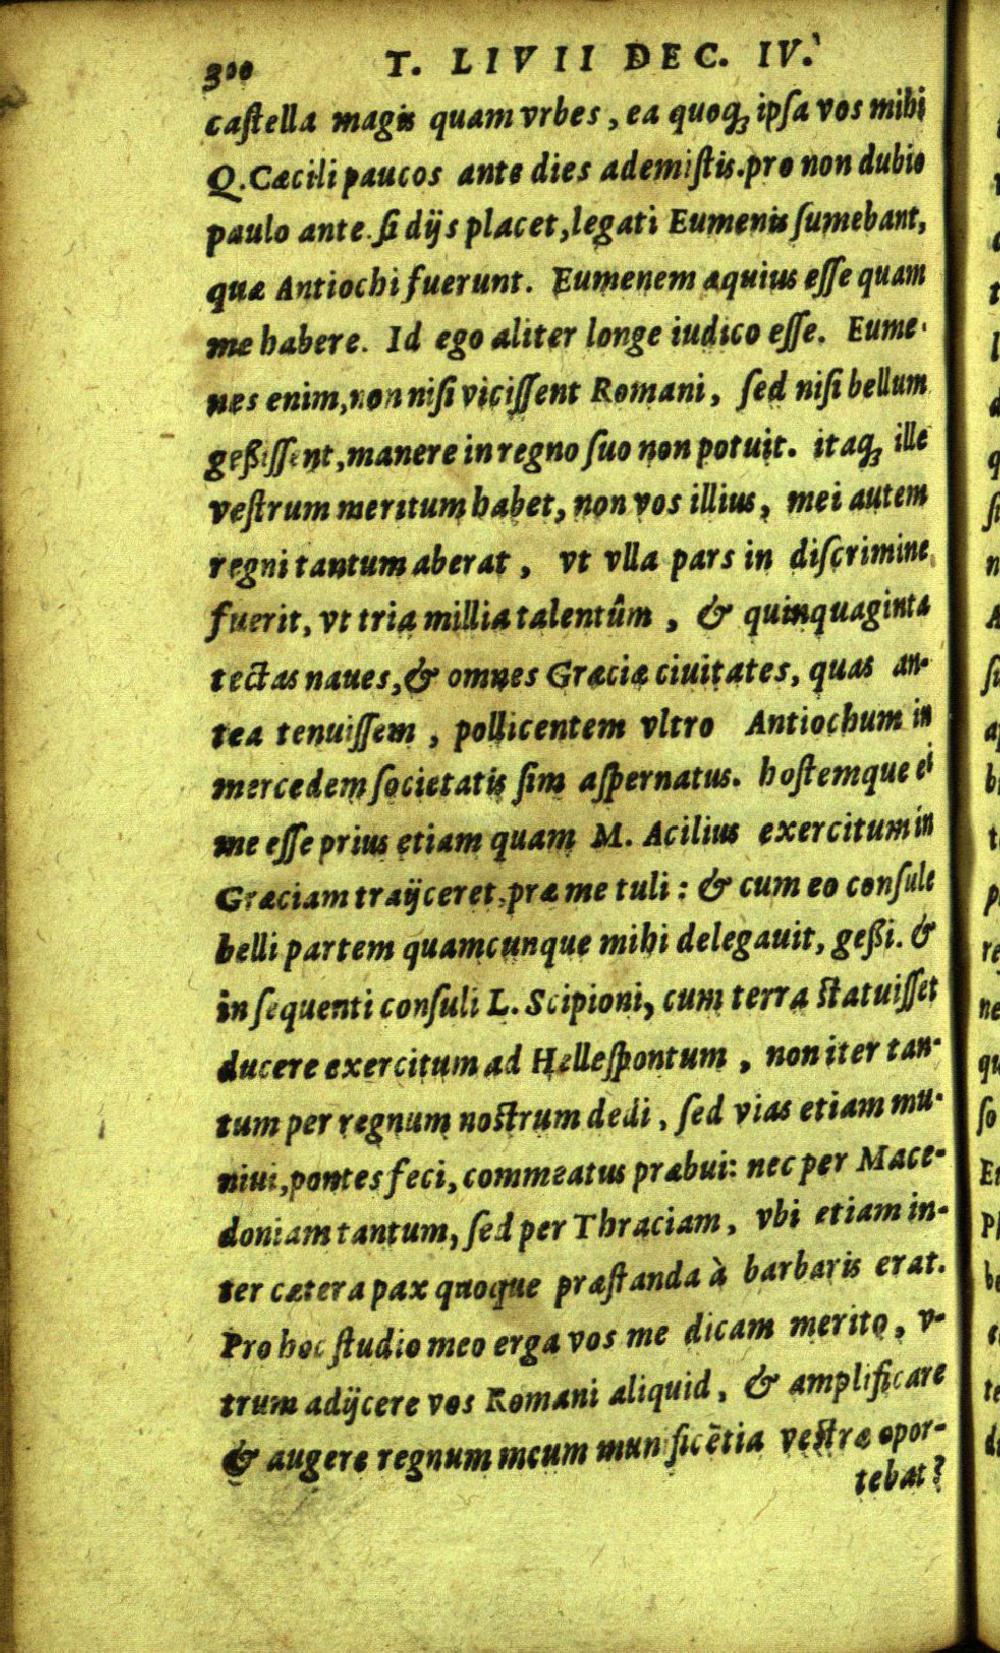 300 T. LIVII DEC. IV.
castella magis quam vrbes, ea quoq; ipsa vos mihi
Q. Cæcili paucos ante dies ademistis. pro non dubio
paulo ante. si dijs placet, legati Eumenis sumebant,
quæ Antiochi fuerunt. Eumenem æquius esse quam
me habere. Id ego aliter longe iudico esse. Eume-
nes enim, non nisi vicissent Romani, sed nisi bellum
geßissent, manere in regno suo non potuit. itaq; ille
vestrum meritum habet, non vos illius, mei autem
regni tantum aberat, vt vlla pars in discrimine
fuerit, vt tria millia talentûm, & quinquaginta
tectas naues, & omnes Græciæ ciuitates, quas an-
tea tenuissem, pollicentem vltro Antiochum in
mercedem societatis sim aspernatus. hostemque ei
me esse prius etiam quam M. Acilius exercitum in
Græciam traijceret, præ me tuli: & cum eo consule
belli partem quamcunque mihi delegauit, geßi. &
insequenti consuli L. Scipioni, cum terra statuisset
ducere exercitum ad Hellespontum, non iter tan-
tum per regnum nostrum dedi, sed vias etiam mu-
niui, pontes feci, commeatus præbui: nec per Mace-
doniam tantum, sed per Thraciam, vbi etiam in-
ter cætera pax quoque præstanda à barbaris erat.
Pro hoc studio meo erga vos me dicam merito, v-
trum adijcere vos Romani aliquid, & amplificare
& augere regnum meum munificẽtia vestra opor-
tebat?